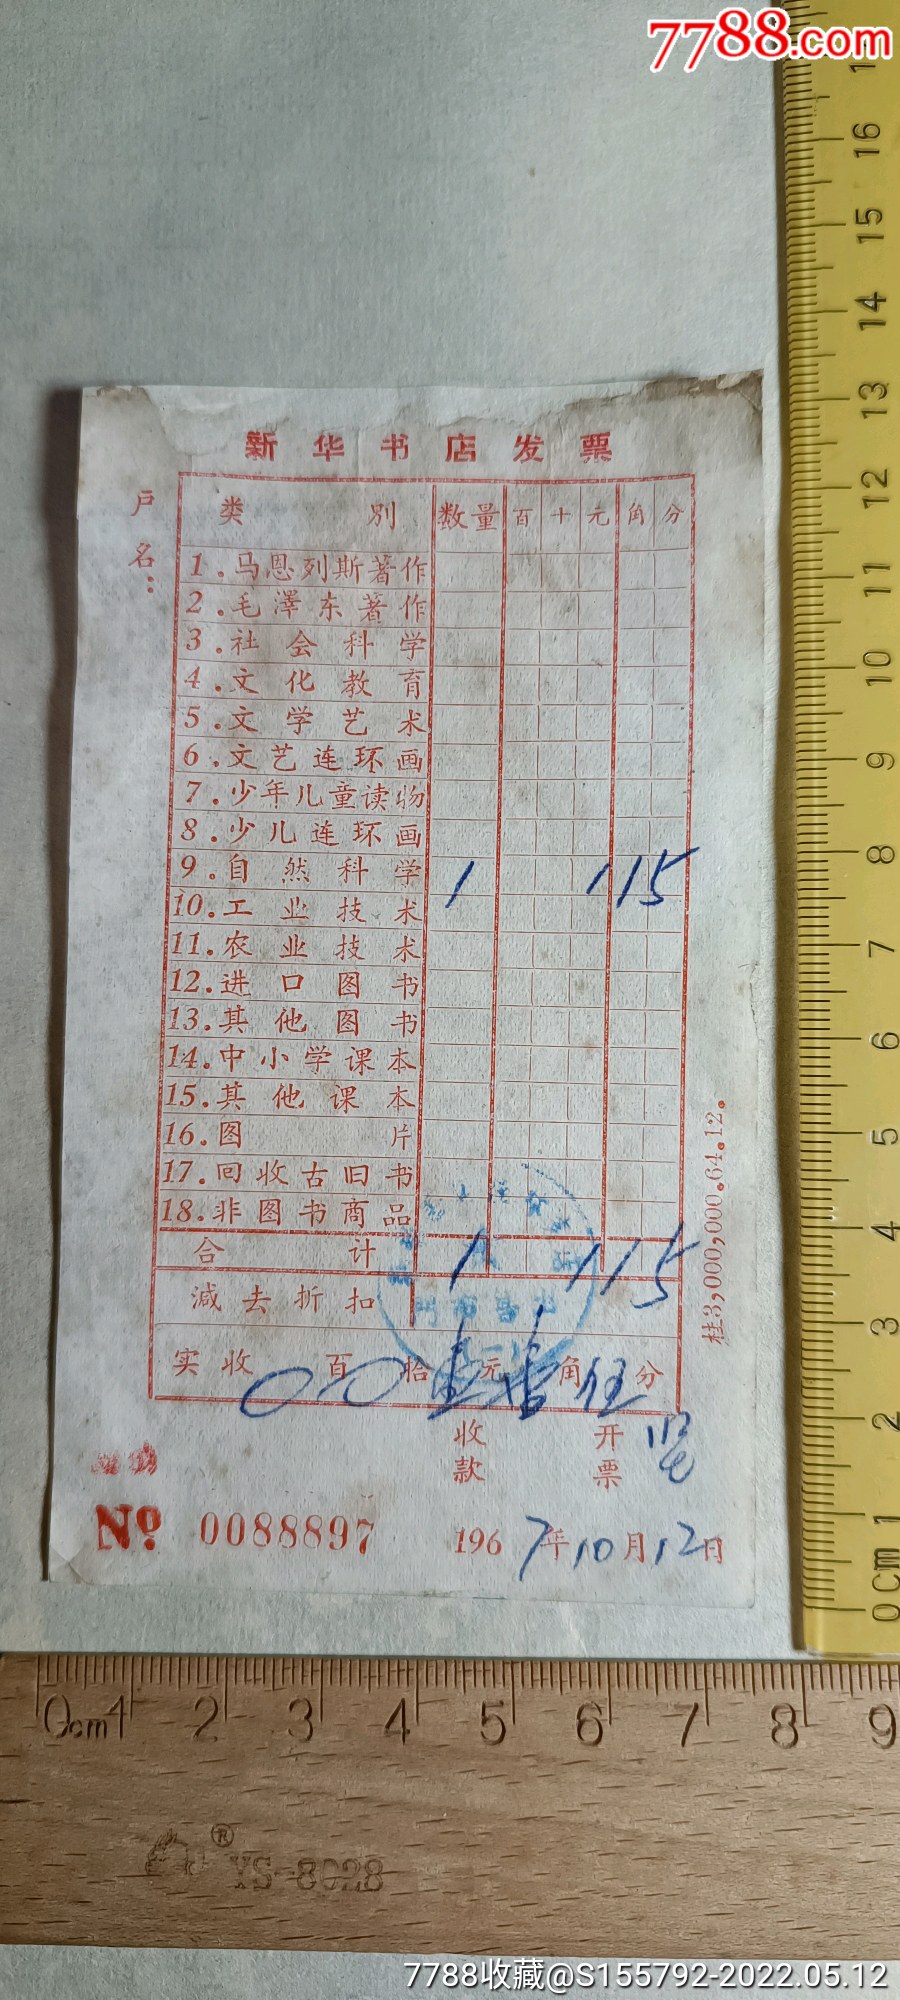 7788.com
新华书店发票
户名：
类别 数量 百 十 元 角 分
1.马恩列斯著作
2.毛澤东著作
3.社会科学
4.文化教育
5.文学艺术
6.文艺连环画
7.少年儿童读物
8.少儿连环画
9.自然科学 1 1 1 5
10.工业技术
11.农业技术
12.进口图书
13.其他图书
14.中小学课本
15.其他课本
16.图片
17.回收古旧书
18.非图书商品
合计 1 1 1 5
减去折扣
实收 0 百 0 拾 壹 元 壹 角 伍 分
收款 开票
№ 0088897 1967年10月12日
桂3,000,000.64.12.
17 16 15 14 13 12 11 10 9 8 7 6 5 4 3 2 1 0cm
0cm 1 2 3 4 5 6 7 8 9
® YS-8028
7788收藏@S155792-2022.05.12